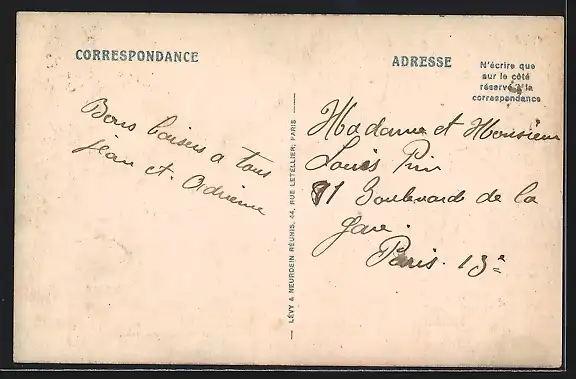 CORRESPONDANCE
Bons baisers a tous
Jean et Adrienne
LÉVY & NEURDEIN RÉUNIS, 44, RUE LETELLIER, PARIS
ADRESSE
N'écrire que
sur le côté
réservé à la
correspondance
Madame et Monsieur
Louis Prin
81 Boulevard de la
gare.
Paris. 13e